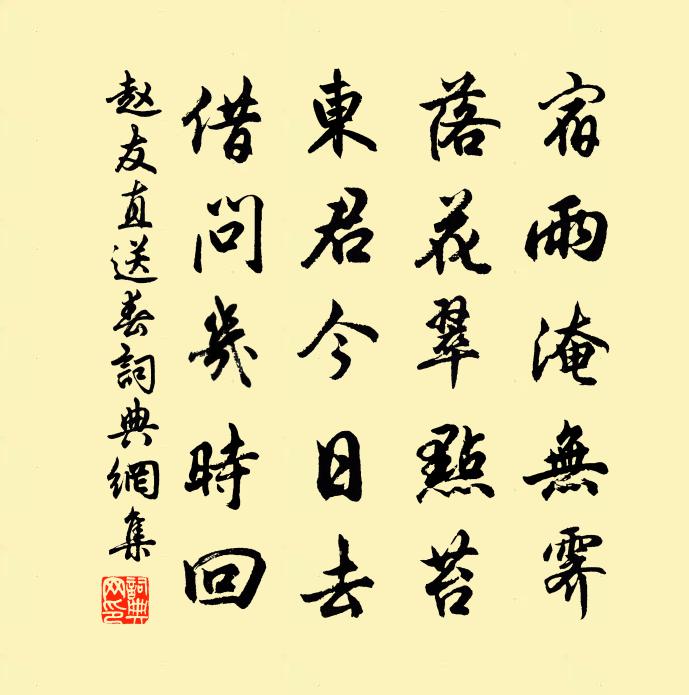 宿雨淹無霽
落花翠點苔
東君今日去
借問幾時回
赵友直送春詞典網集
詞典网印